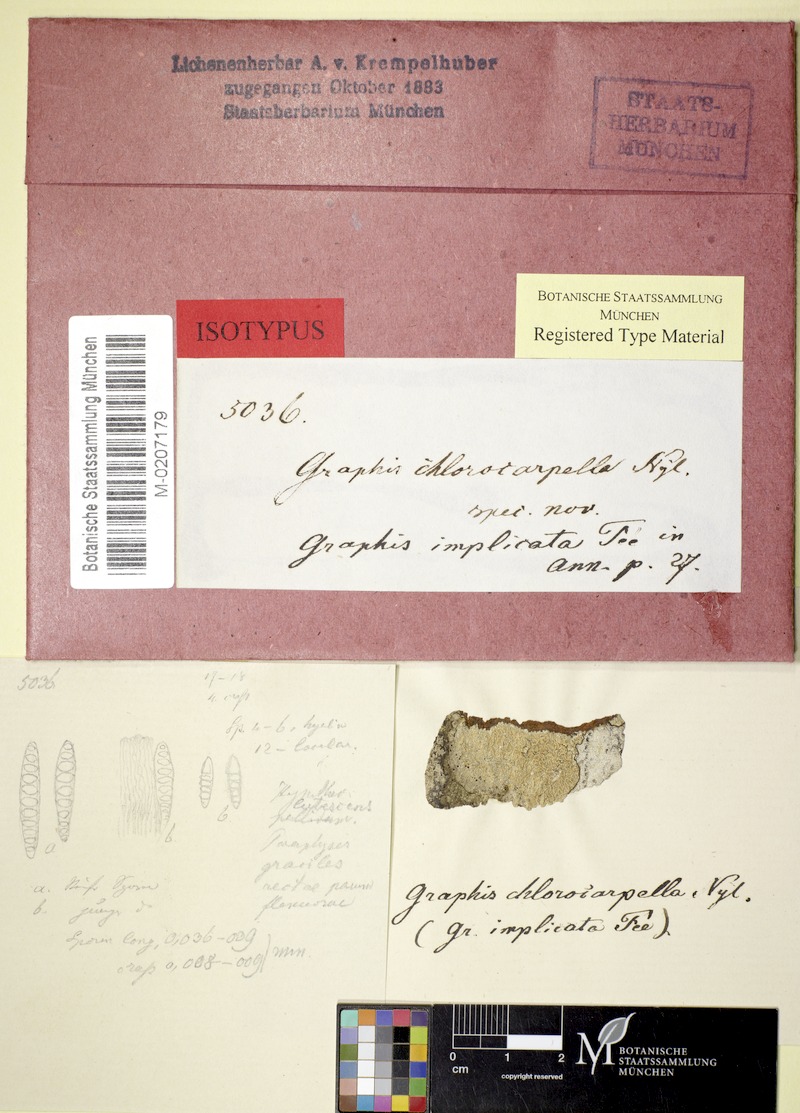 Lichenenherbar A. v. Krempelhuber
zugegangen Oktober 1883
Staatsherbarium München
STAATS-
HERBARIUM
MÜNCHEN
BOTANISCHE STAATSSAMMLUNG
MÜNCHEN
Registered Type Material
ISOTYPUS
Botanische Staatssammlung München
M-0207179
5036.
Graphis chlorocarpella Nyl.
spec. nov.
Graphis implicata Fée in
Ann. p. 27.
5036
17-18
4 crass
Sp. 4-6, hyalin
12-locular.
a
b
b
lutescens
pellucidum.
Paraphysis
graciles
rectae parum
flexuosae
a. Reife Sporen
b. junge do
Sporen long. 0,036-039
crass 0,008-009
mm.
Graphis chlorocarpella Nyl.
(Gr. implicata Fée)
0 1 2
cm
copyright reserved
M
BOTANISCHE
STAATSSAMMLUNG
MÜNCHEN